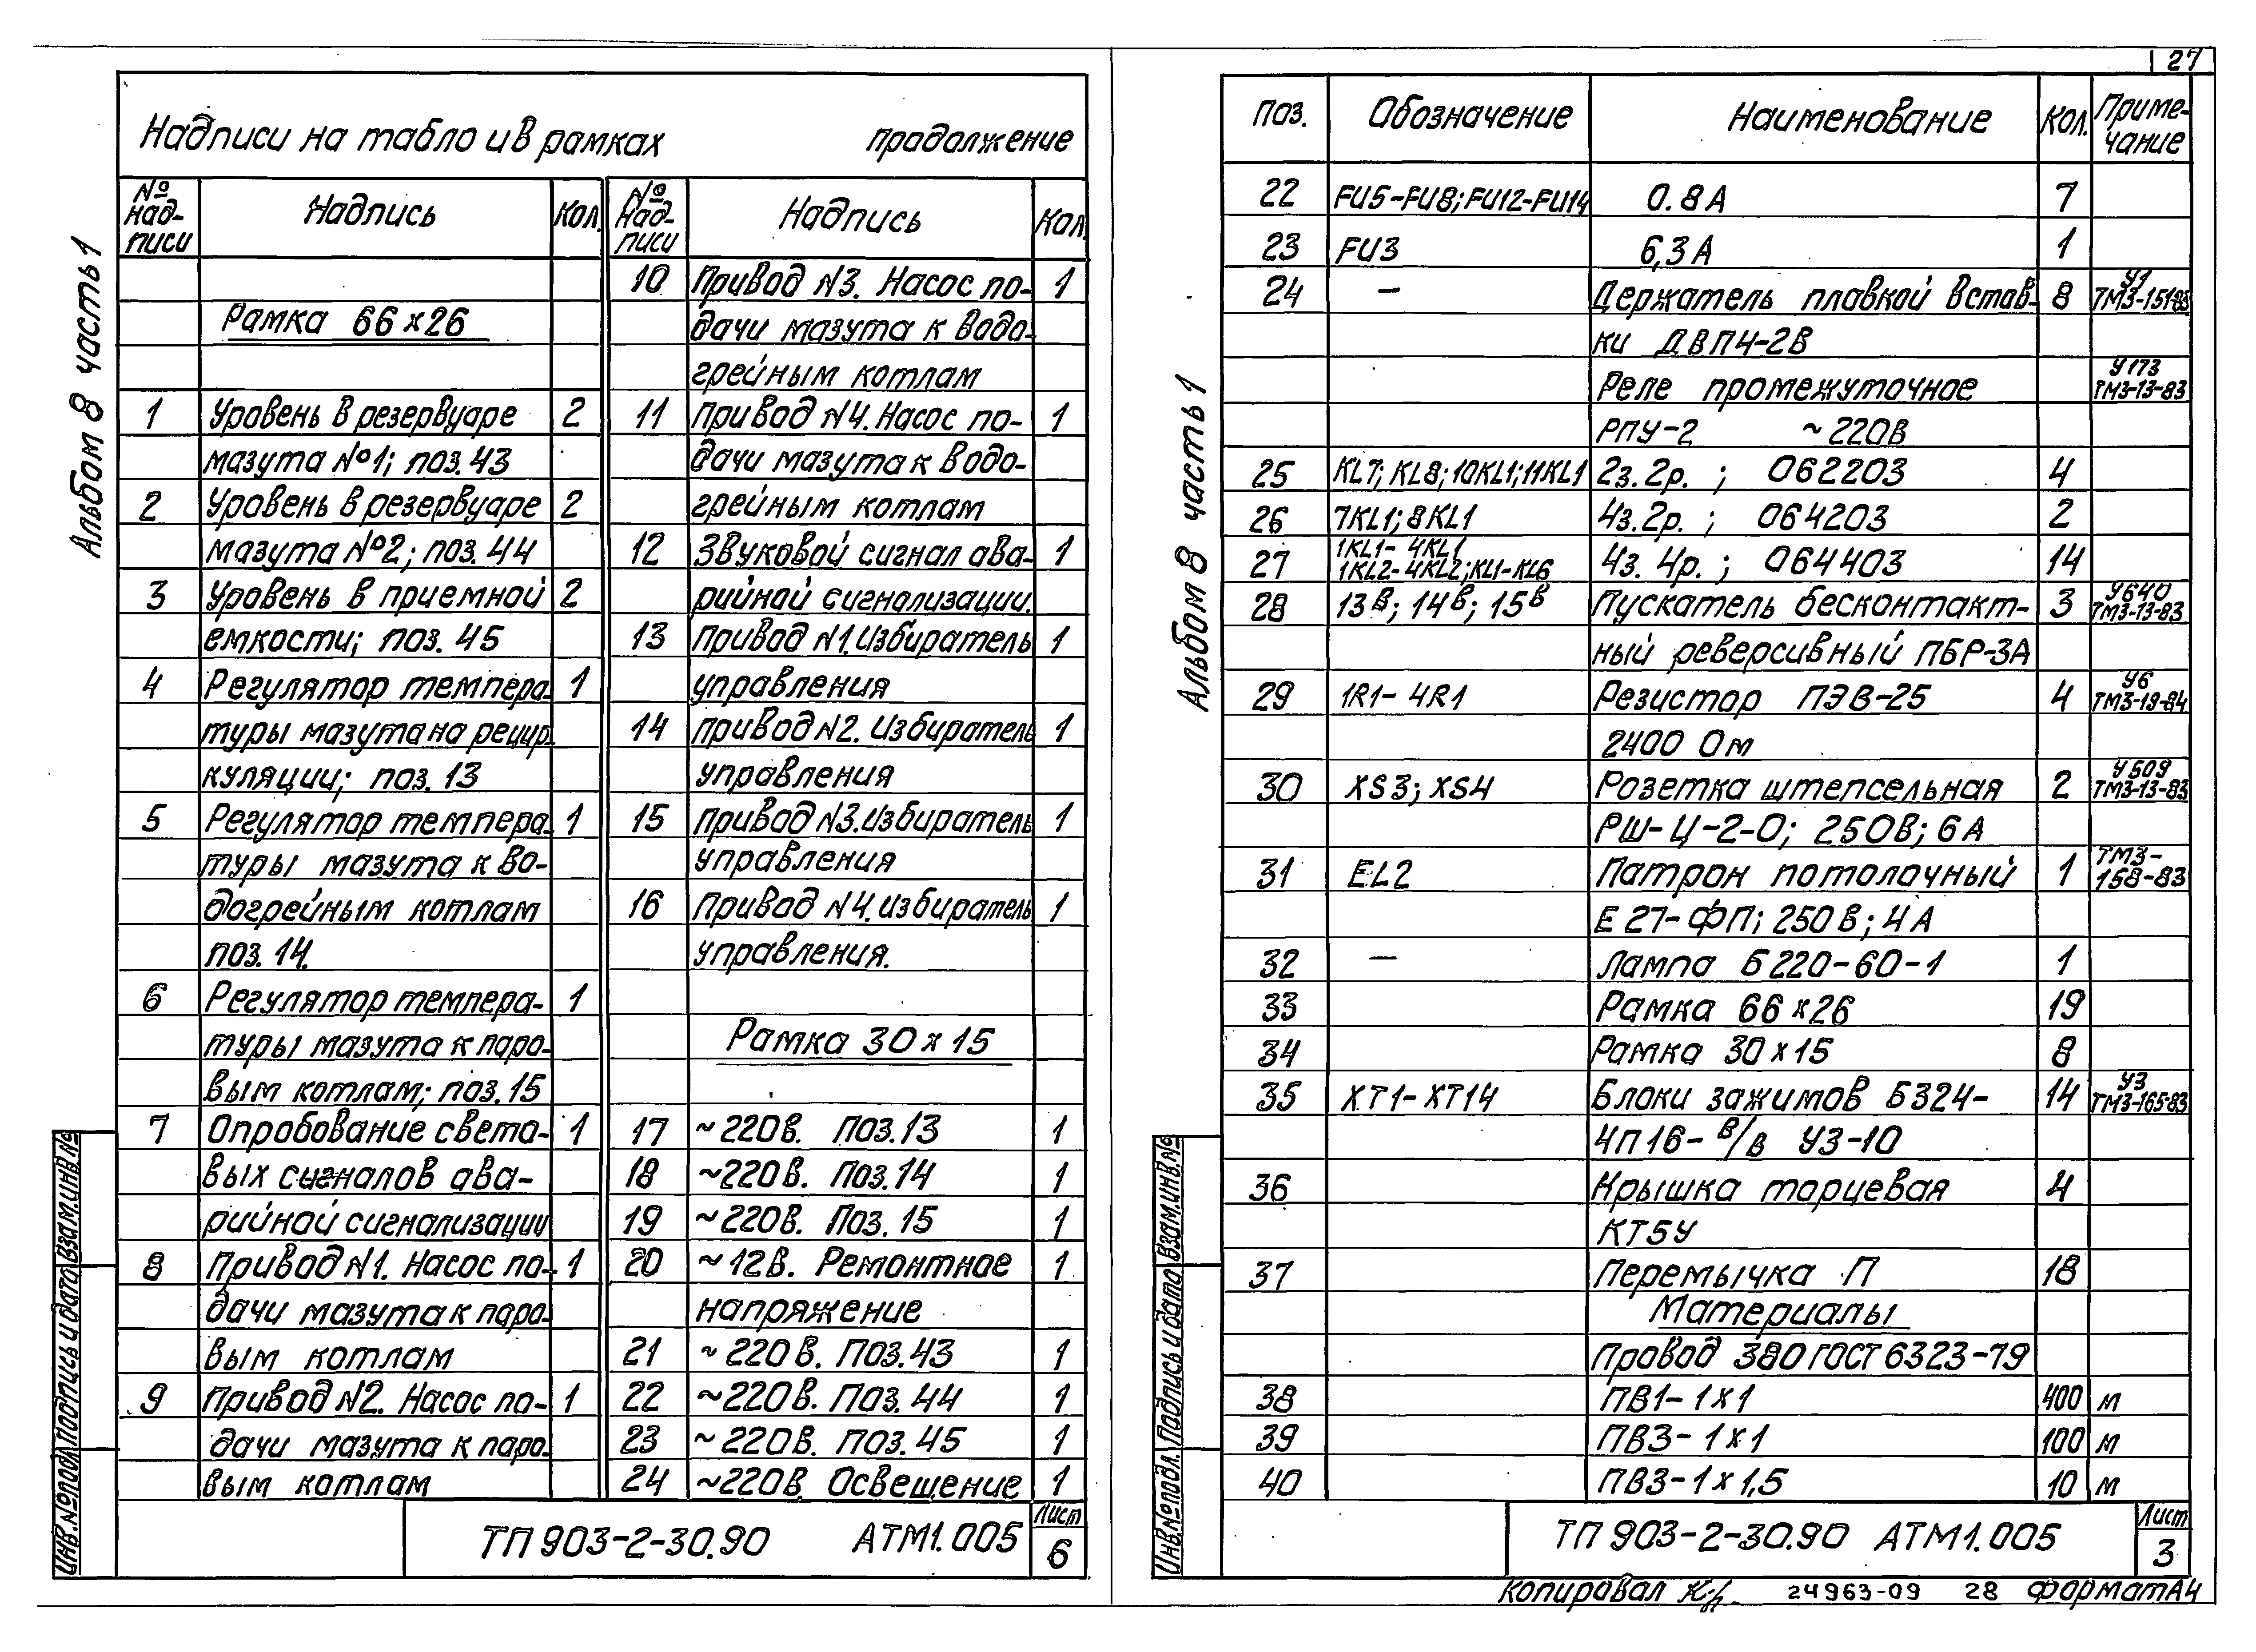 27
Альбом 8 часть 1
Надписи на табло и в рамках продолжение
№ надписи Надпись Кол. № надписи Надпись Кол.
Рамка 66х26
1 Уровень в резервуаре 2
мазута №1; поз. 43
2 Уровень в резервуаре 2
мазута №2; поз. 44
3 Уровень в приемной 2
емкости; поз. 45
4 Регулятор темпера- 1
туры мазута на рецир-
куляции; поз. 13
5 Регулятор темпера- 1
туры мазута к во-
догрейным котлам
поз. 14.
6 Регулятор темпера- 1
туры мазута к паро-
вым котлам; поз. 15
7 Опробование свето- 1
вых сигналов ава-
рийной сигнализации
8 Привод N1. Насос по- 1
дачи мазута к паро-
вым котлам
9 Привод N2. Насос по- 1
дачи мазута к паро-
вым котлам
10 Привод N3. Насос по- 1
дачи мазута к водо-
грейным котлам
11 Привод N4. Насос по- 1
дачи мазута к водо-
грейным котлам
12 Звуковой сигнал ава- 1
рийной сигнализации.
13 Привод N1. Избиратель 1
управления
14 Привод N2. Избиратель 1
управления
15 Привод N3. Избиратель 1
управления
16 Привод N4. Избиратель 1
управления.
Рамка 30х15
17 ~220В. Поз. 13 1
18 ~220В. Поз. 14 1
19 ~220В. Поз. 15 1
20 ~12В. Ремонтное 1
напряжение
21 ~220В. Поз. 43 1
22 ~220В. Поз. 44 1
23 ~220В. Поз. 45 1
24 ~220В. Освещение 1
Инв.№подл. Подпись и дата Взам.инв.№
ТП 903-2-30.90 АТМ1.005
Лист
6
Альбом 8 часть 1
Поз. Обозначение Наименование Кол. Примечание
22 FU5-FU8; FU12-FU14 0.8А 7
23 FU3 6,3А 1
24 — Держатель плавкой встав- 8 У1 ТМ3-151-83
ки ДВП4-2В
Реле промежуточное У173 ТМ3-13-83
РПУ-2 ~220В
25 KL7; KL8; 10KL1; 11KL1 2з. 2р. ; 062203 4
26 7KL1; 8KL1 4з. 2р. ; 064203 2
27 1KL1-4KL1 1KL2-4KL2; KL1-KL6 4з. 4р. ; 064403 14
28 13в; 14в; 15в Пускатель бесконтакт- 3 У640 ТМ3-13-83
ный реверсивный ПБР-3А
29 1R1-4R1 Резистор ПЭВ-25 4 У6 ТМ3-19-84
2400 Ом
30 XS3; XS4 Розетка штепсельная 2 У509 ТМ3-13-83
РШ-Ц-2-0; 250В; 6А
31 EL2 Патрон потолочный 1 ТМ3-158-83
Е27-ФП; 250В; 4А
32 — Лампа Б220-60-1 1
33 Рамка 66х26 19
34 Рамка 30х15 8
35 ХТ1-ХТ14 Блоки зажимов Б324- 14 У3 ТМ3-165-83
4П16-В/В У3-10
36 Крышка торцевая 4
КТ5У
37 Перемычка П 18
Материалы
Провод 380 ГОСТ 6323-79
38 ПВ1-1х1 400 м
39 ПВ3-1х1 100 м
40 ПВ3-1х1,5 10 м
Инв.№подл. Подпись и дата Взам.инв.№
ТП 903-2-30.90 АТМ1.005
Лист
3
Копировал 24963-09 28 Формат А4